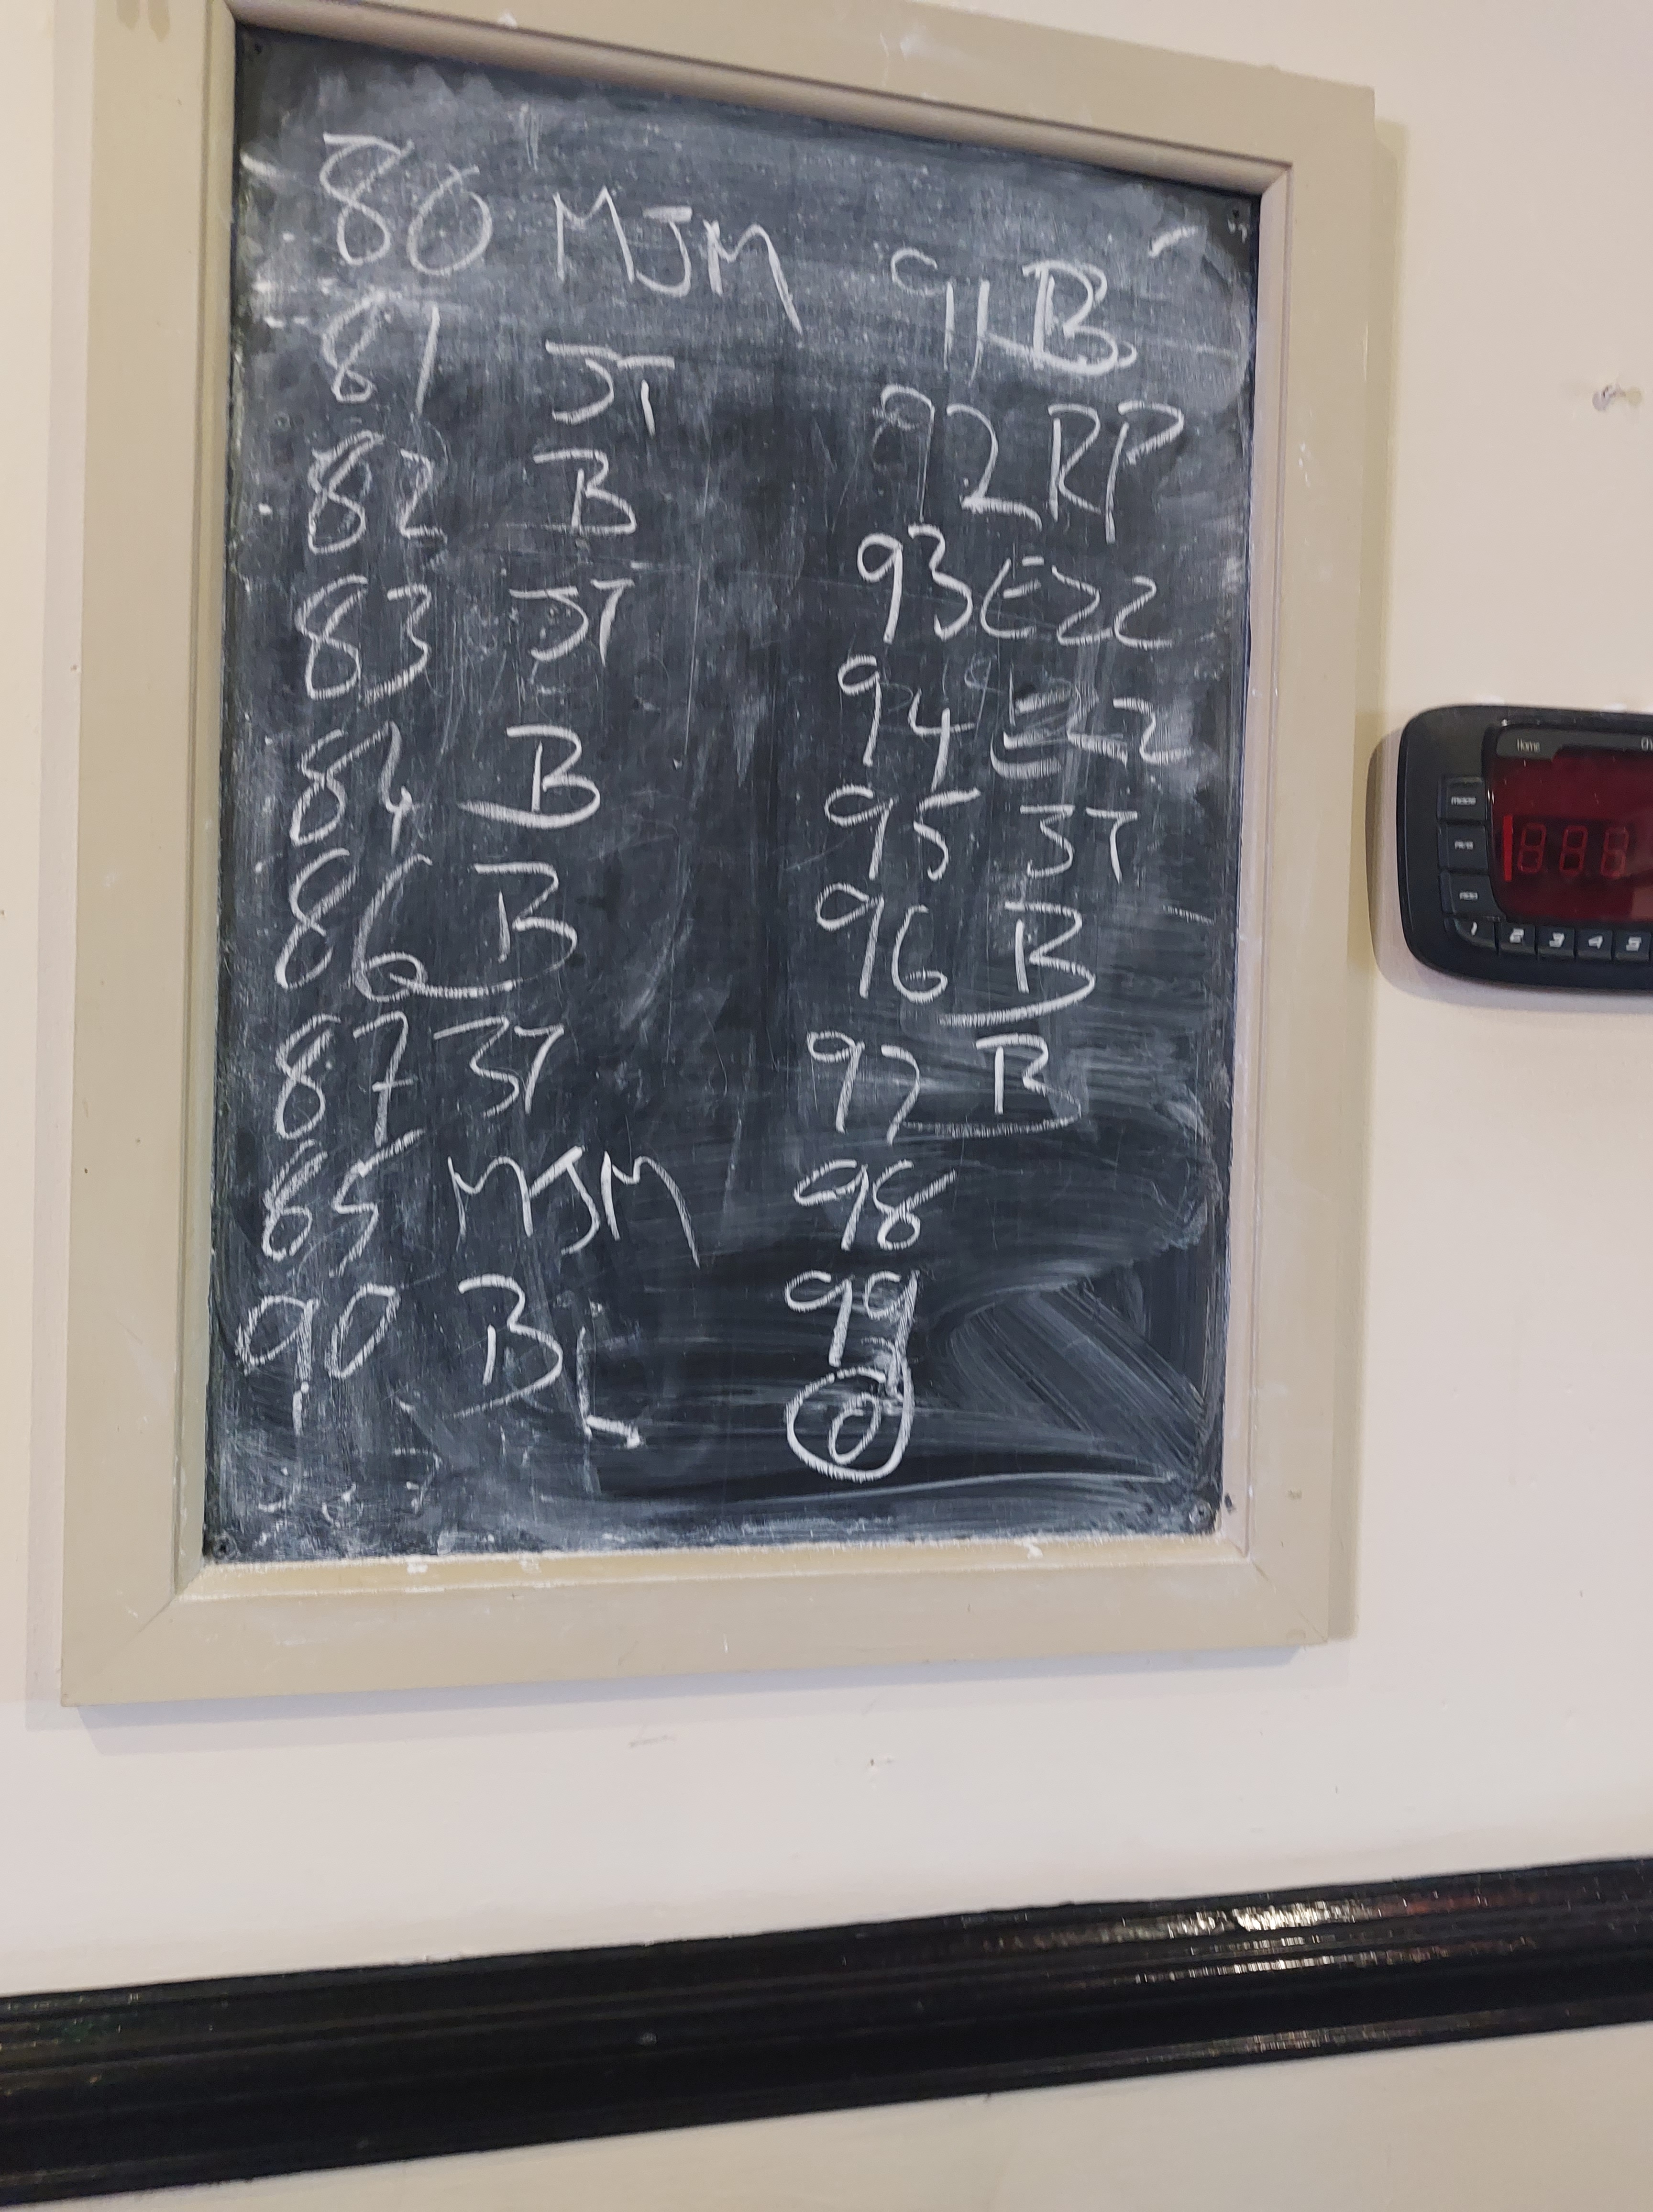 80 MJM
81 JT
82 B
83 JT
84 B
86 B
87 JT
85 MJM
90 BL
91 B
92 RP
93 EZZ
94 EZZ
95 JT
96 B
97 B
98
99
0
Home
1 2 3 4 5